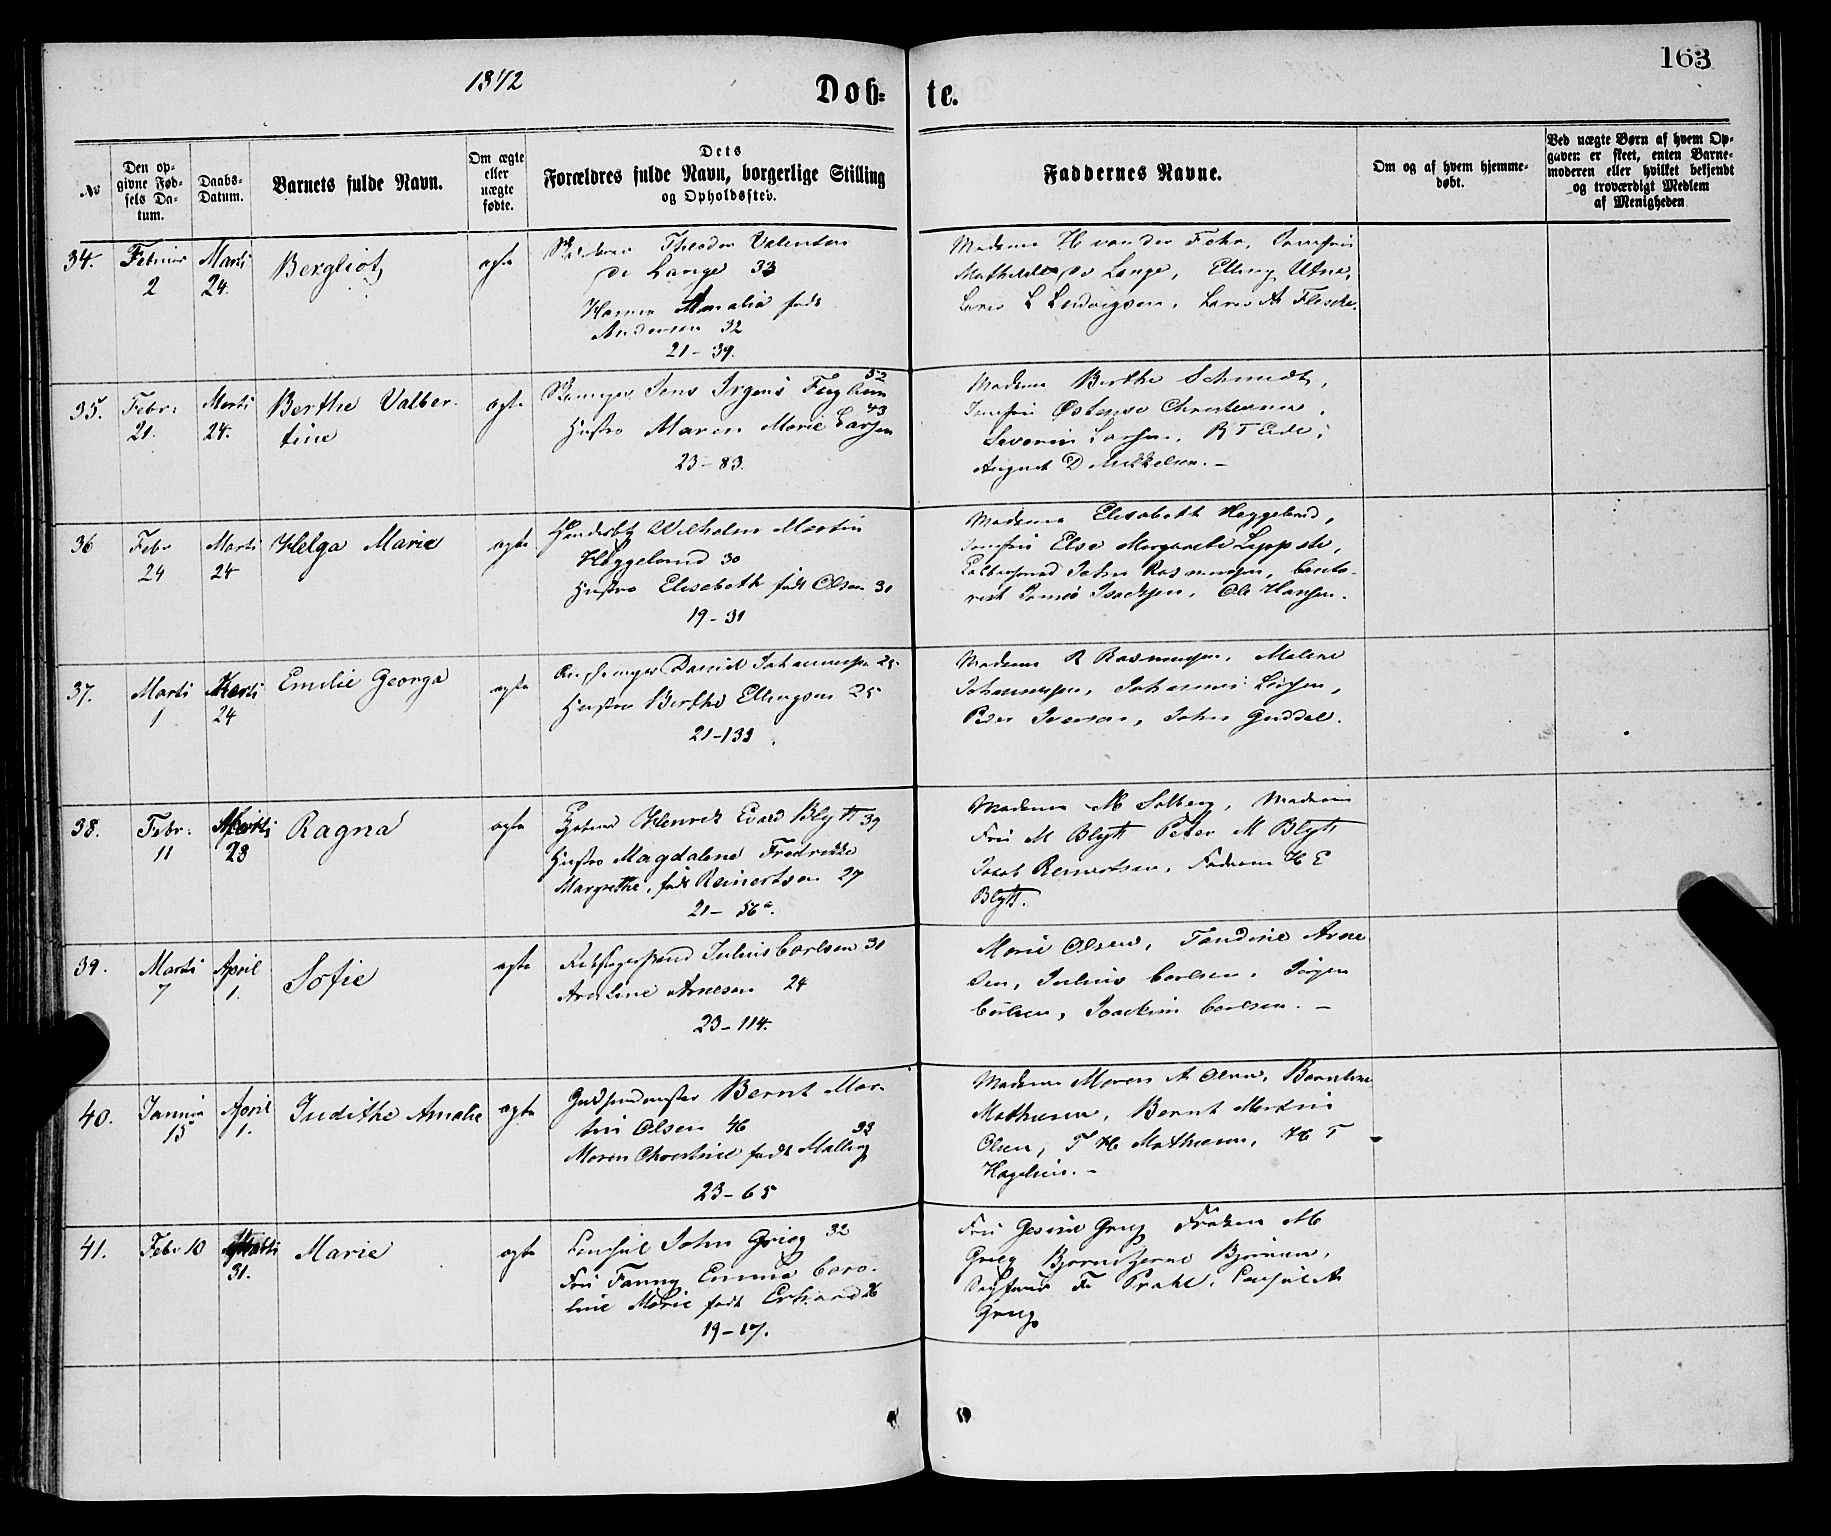 163
1872
Döb-
te.
No
Den op-
givne Fød-
sels Da-
tum.
Daabs-
Datum.
Barnets fulde Navn.
Om ægte
eller
uægte
fødte.
Dets
Forældres fulde Navn, borgerlige Stilling
og Opholdssted.
Faddernes Navne.
Om og af hvem hjemme-
døbt.
Ved uægte Børn af hvem Op-
gaven er skeet, enten Barne-
moderen eller hvilket bekjendt
og troværdigt Medlem
af Menigheden
34.
Februar
2
Marti
24.
Bergliot
ægte
Theodor Valentin
de Lange 33
Hanna Amalia født
Andersen 32
21-39.
Madame H von der Fehr, Jomfru
Mathilde de Lange, Elling Utne,
Lars L Ludvigsen, Lars A Flesche.
35.
Febr:
21.
Marti
24.
Berthe Valber-
tine
ægte
Jens Irgens Fuglum 52
Hustro Maren Marie Larsen 43
23-83.
Madame Berthe Schmidt,
Jomfru Østense Christensen,
Severin Larsen, R T Eide,
August D Mikkelsen.-
36
Febr
24
Marti
24
Helga Marie
ægte
Wilhelm Martin
Heggelund 30
Hustro Elisabeth født Olsen 31
19-31
Madame Elisabeth Heggelund,
Jomfru Else Margarethe
John Rasmussen, Conto-
rist Isachsen, Ole Hansen.
37.
Marti
1
Marti
24
Emilie Georga
ægte
Daniel Johannesen 25
Hustro Berthe Ellingsen 25
21-133
Madame R Rasmussen, Malene
Johannesen, Johannes Larsen,
Peder Iversen, John Guddal.
38.
Febr:
11
Marti
23
Ragna
ægte
Henrik Edvard Blytt 39
Hustro Magdalene Fredrikke
Margrethe, født Reinertsen 27
21- 56a.
Madame M Solberg, Madame
Fru M Blytt Peter M Blytt
Jacob Reinertsen, Faderen H E
Blytt.
39.
Marti
7
April
1.
Sofie
ægte
Julius Carlsen 31
Arnesen 24
23-114.
Marie Olsen, Tandine Arne
sen, Julius Carlsen, Jørgen
Carlsen, Joachim Carlsen.-
40.
Januar
15
April
1.
Judithe Amalie
ægte
Bernt Mar-
tin Olsen 46
Maren Christine født Malling 33
23-65
Madame Maren A Olsen, Berntine
Mathiesen, Bernt Martin
Olsen, T H Mathiesen, H T
Hagelien.-
41.
Febr 10
Marti
31.
Marie
ægte
Consul John Grieg 32
Fru Fanny Emma Caro-
line Marie født Erhardt 26
19-17.
Fru Gesine Grieg Frøken M
Grieg Bjørnstjerne Bjørnson,
F Prahl, Consul A
Grieg